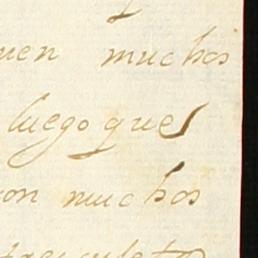 uen muchos
luego que
on muchos